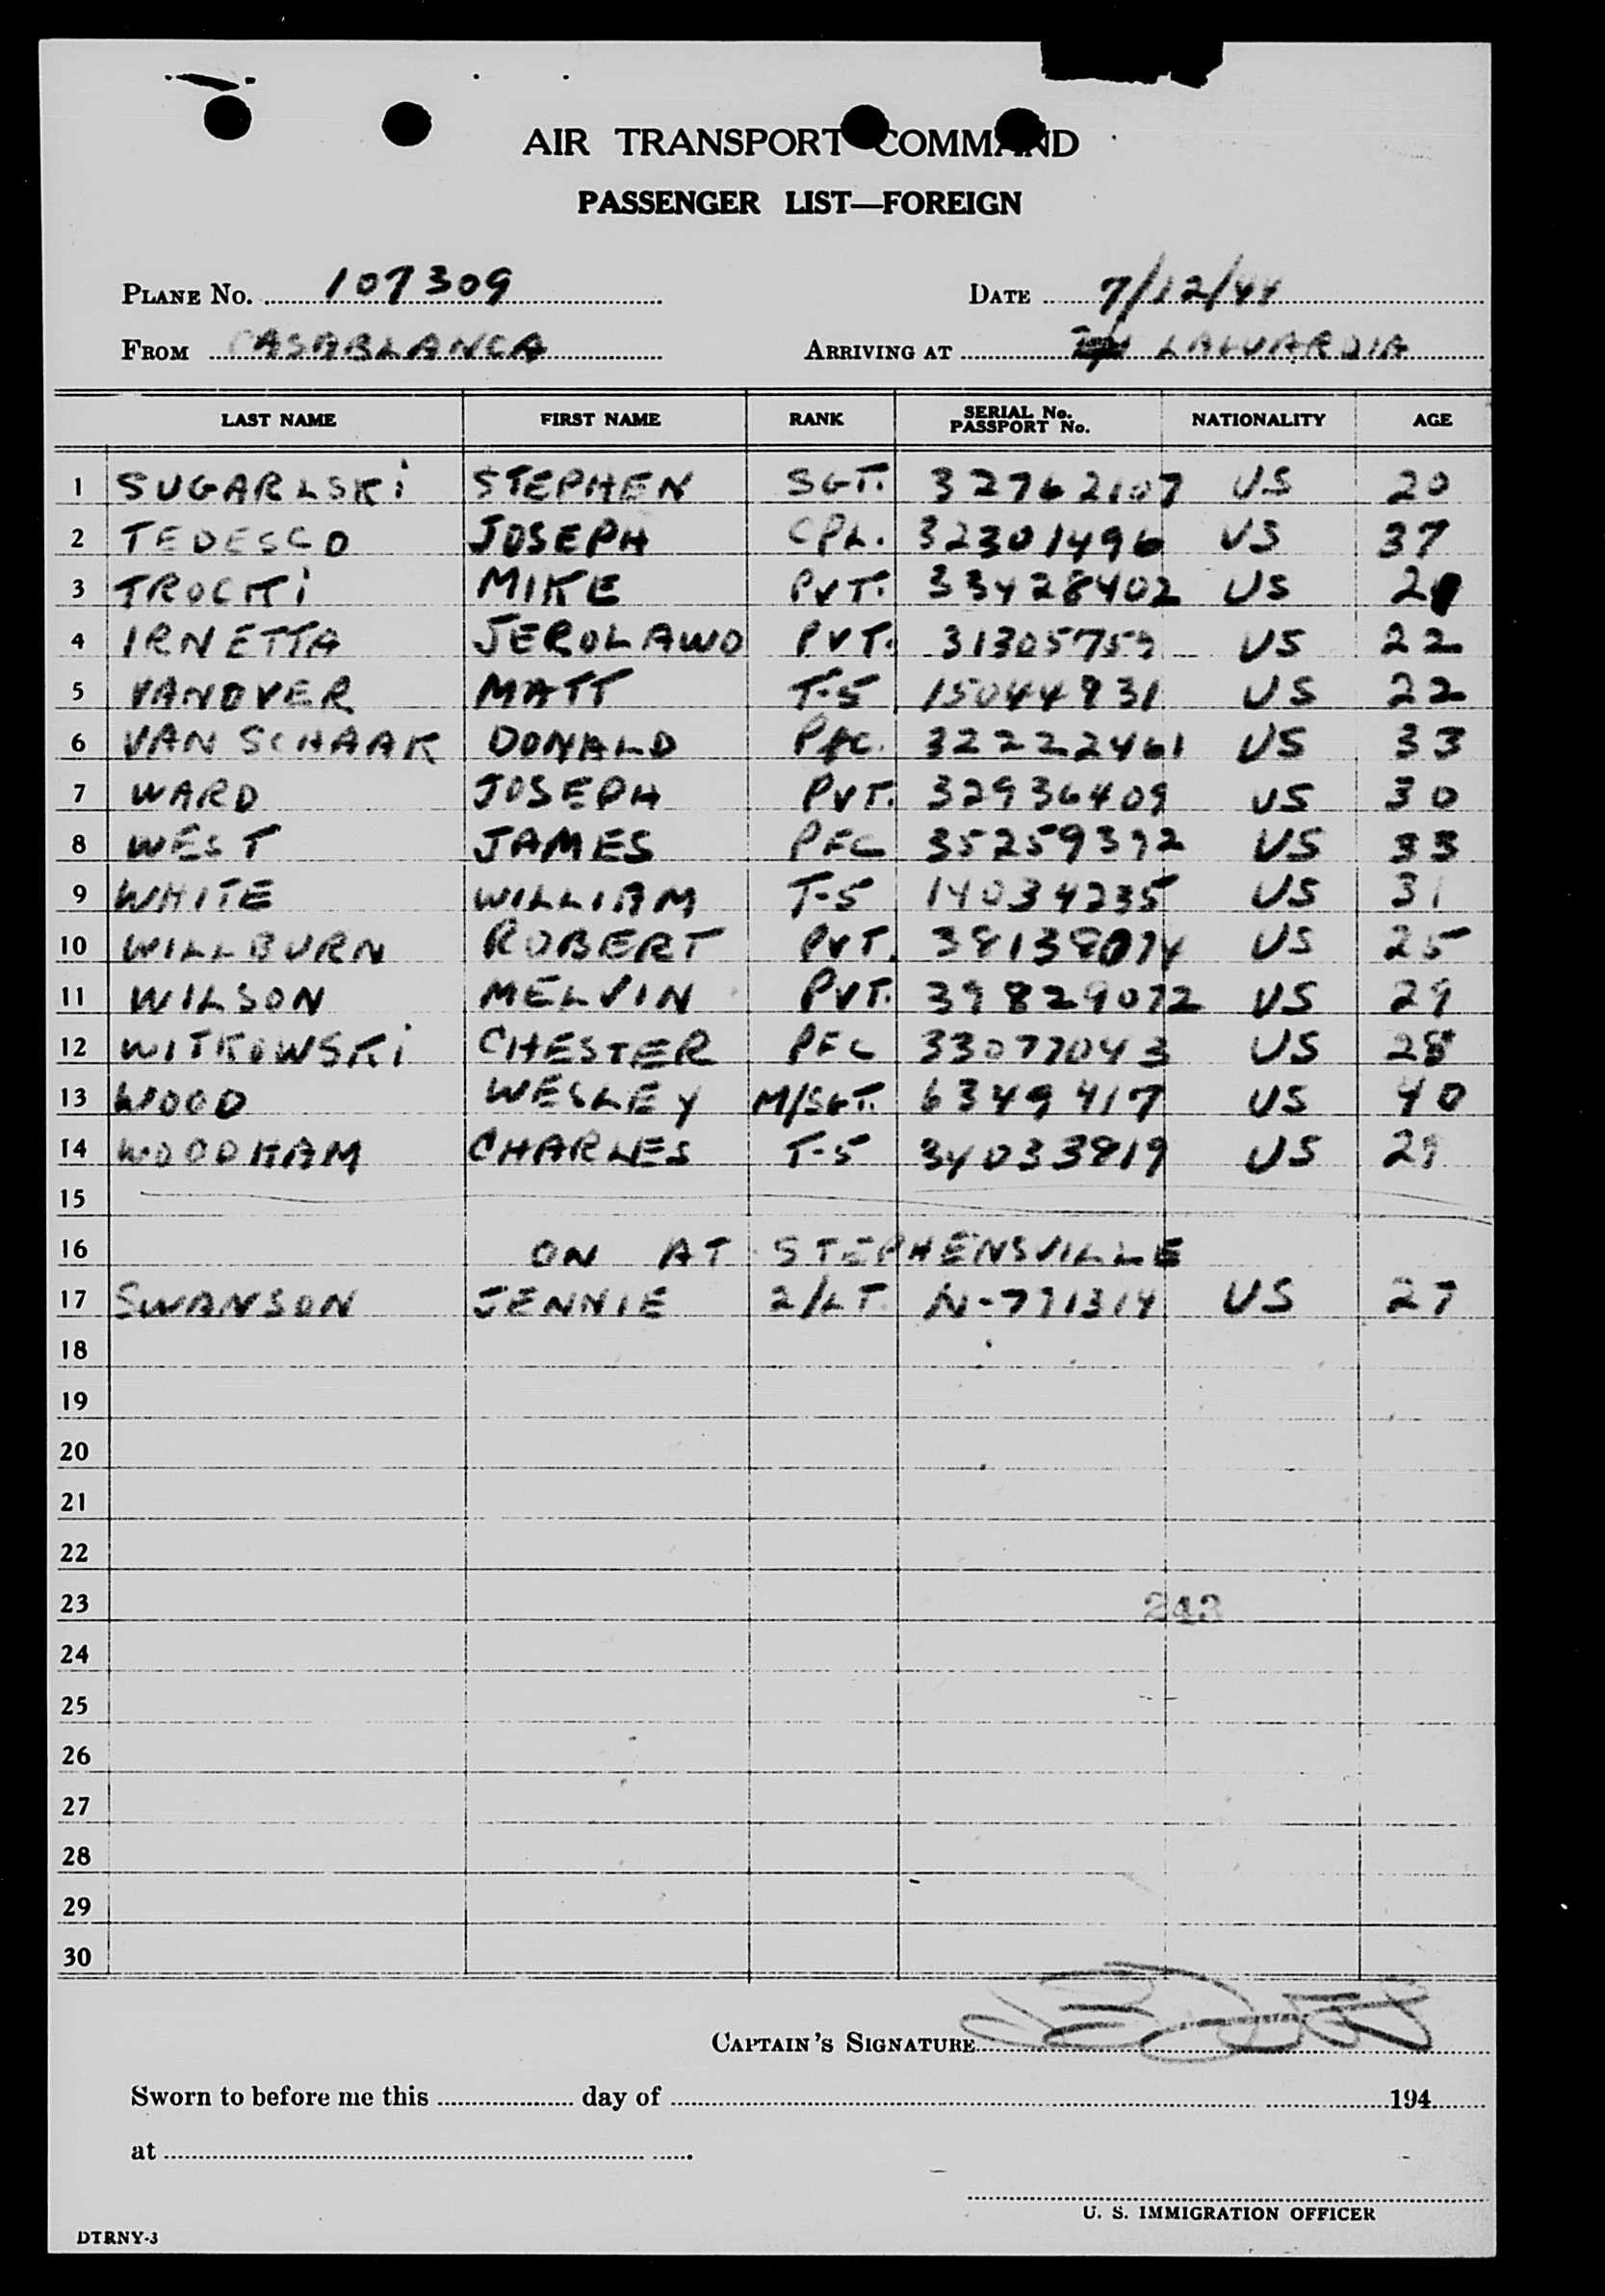 AIR TRANSPORT COMMAND
PASSENGER LIST—FOREIGN
PLANE No. 107309 DATE 7/12/44
FROM CASABLANCA ARRIVING AT LAGUARDIA
LAST NAME FIRST NAME RANK SERIAL No. PASSPORT No. NATIONALITY AGE
1 SUGARLSKi STEPHEN SGT. 32762107 US 20
2 TEDESCO JOSEPH CPL. 32301496 US 37
3 TROCKi MIKE PVT. 33428402 US
4 IRNETTA JEROLAWO PVT. 31305759 US 22
5 VANOVER MATT T-5 15044931 US 22
6 VAN SCHAAK DONALD Pfc. 32222461 US 33
7 WARD JOSEPH PVT. 32936409 US 30
8 WEST JAMES PFC 35259392 US 33
9 WHITE WILLIAM T-5 14034235 US 31
10 WILLBURN ROBERT PVT. 38138074 US 25
11 WILSON MELVIN PVT. 39829072 US 29
12 WITKOWSKi CHESTER PFC 33077043 US 28
13 WOOD WESLEY M/SGT. 6349417 US 40
14 WOODHAM CHARLES T-5 34033819 US 29
15
16 ON AT STEPHENSVILLE
17 SWANSON JENNIE 2/LT. N-771314 US 27
18
19
20
21
22
23 243
24
25
26
27
28
29
30
CAPTAIN'S SIGNATURE
Sworn to before me this day of 194
at
U. S. IMMIGRATION OFFICER
DTRNY-3